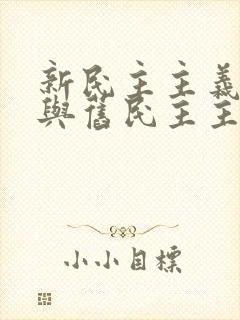 新民主主義
與舊民主主
小小目標